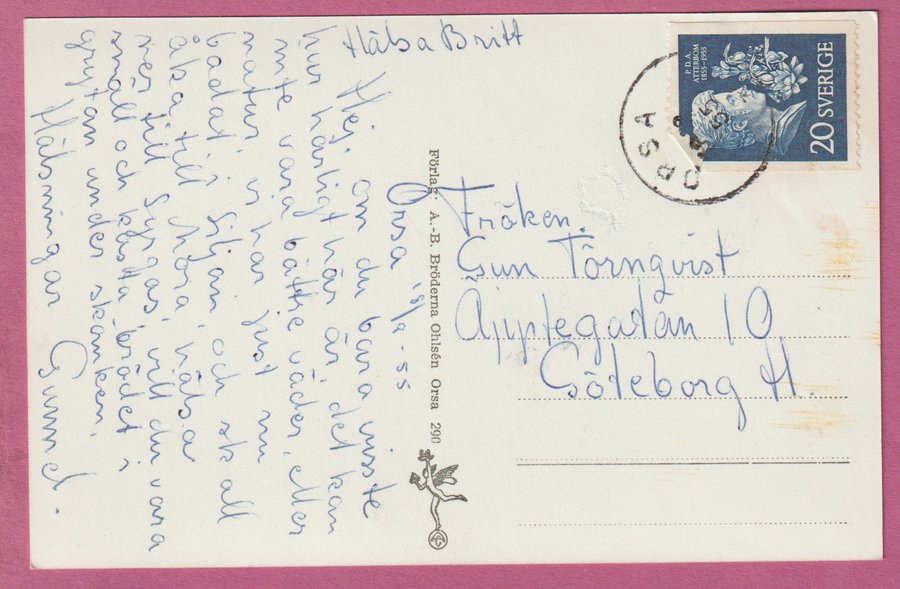 Hälsa Britt
Orsa 18/8 -55
Hej, om du bara visste
hur härligt här är, det kan
inte vara bättre väder, eller
natur, vi har just nu
badat i Siljan och skall
åka till Mora, hälsa
ner till Sygas, vill du vara
snäll och kasta brödet i
grytan under skänken.
Hälsningar Gunnel.
Förlag: A.-B. Bröderna Ohlsén Orsa 290
P.D.A.
ATTERBOM
1855-1955
20 SVERIGE
ORSA
55
Fröken.
Gun Törnqvist
Äpplegatan 10
Göteborg H.